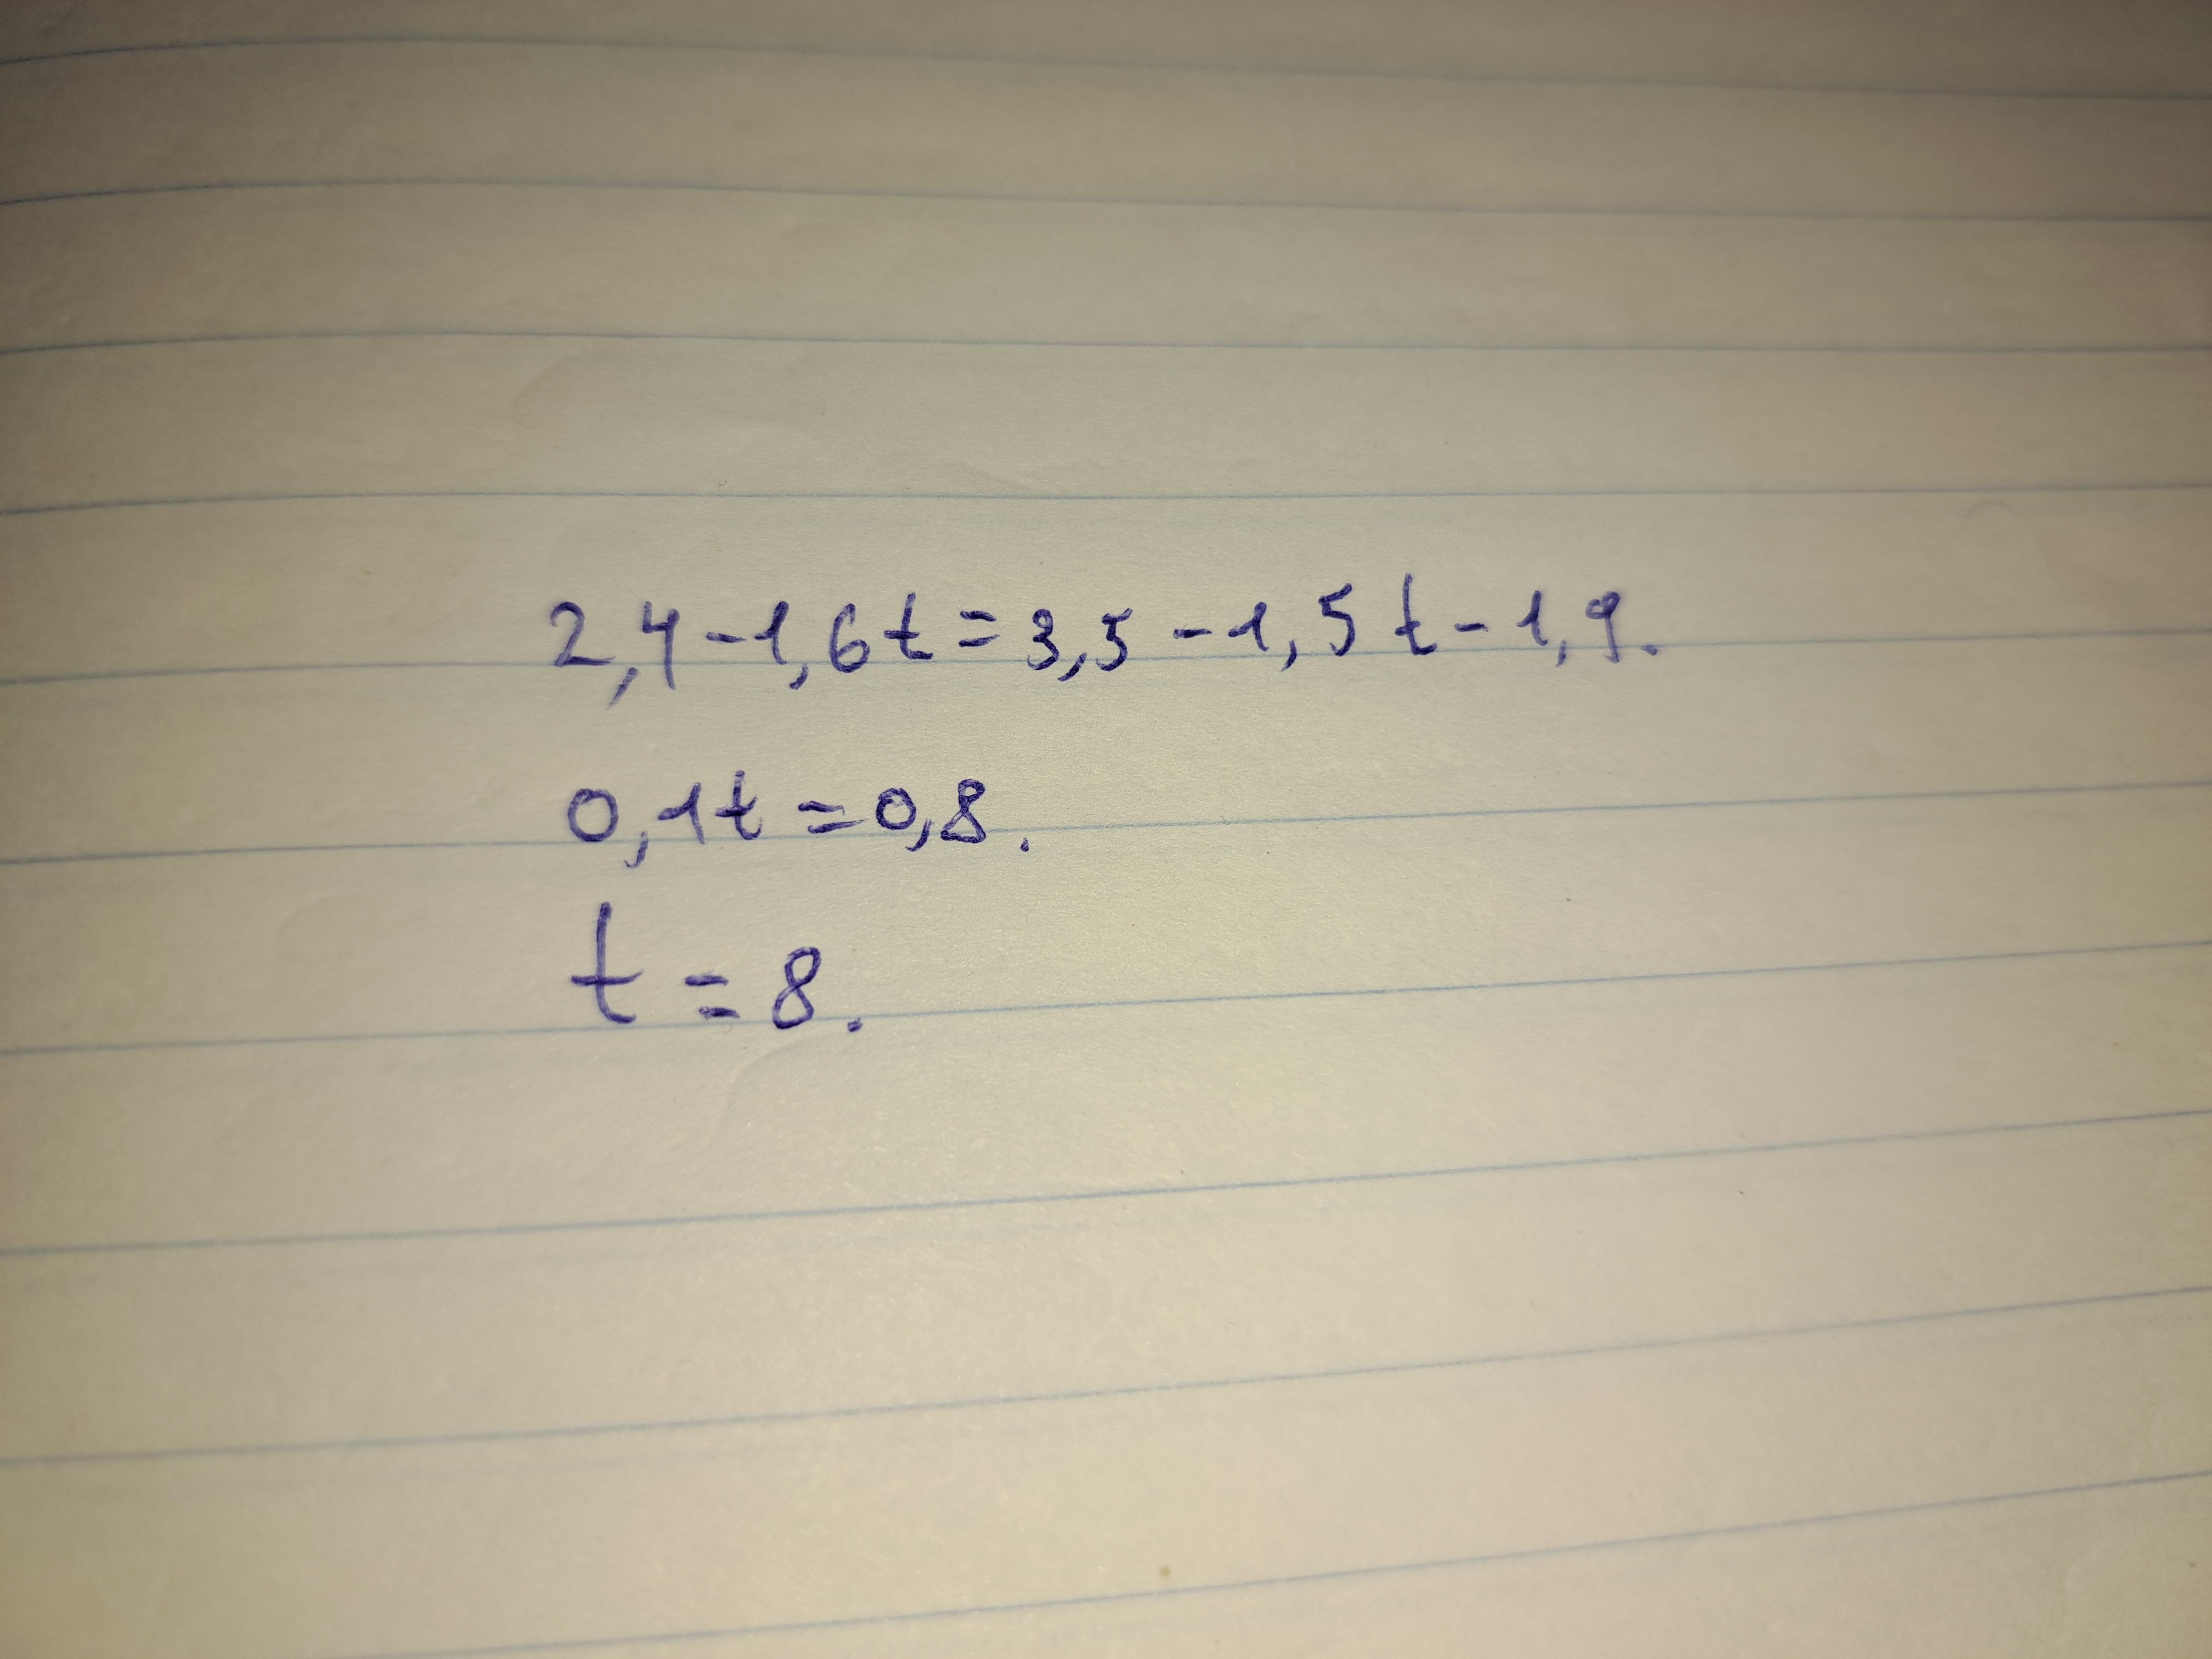 2,4-1,6t=3,5-1,5t-1,9.
0,1t=0,8.
t=8.